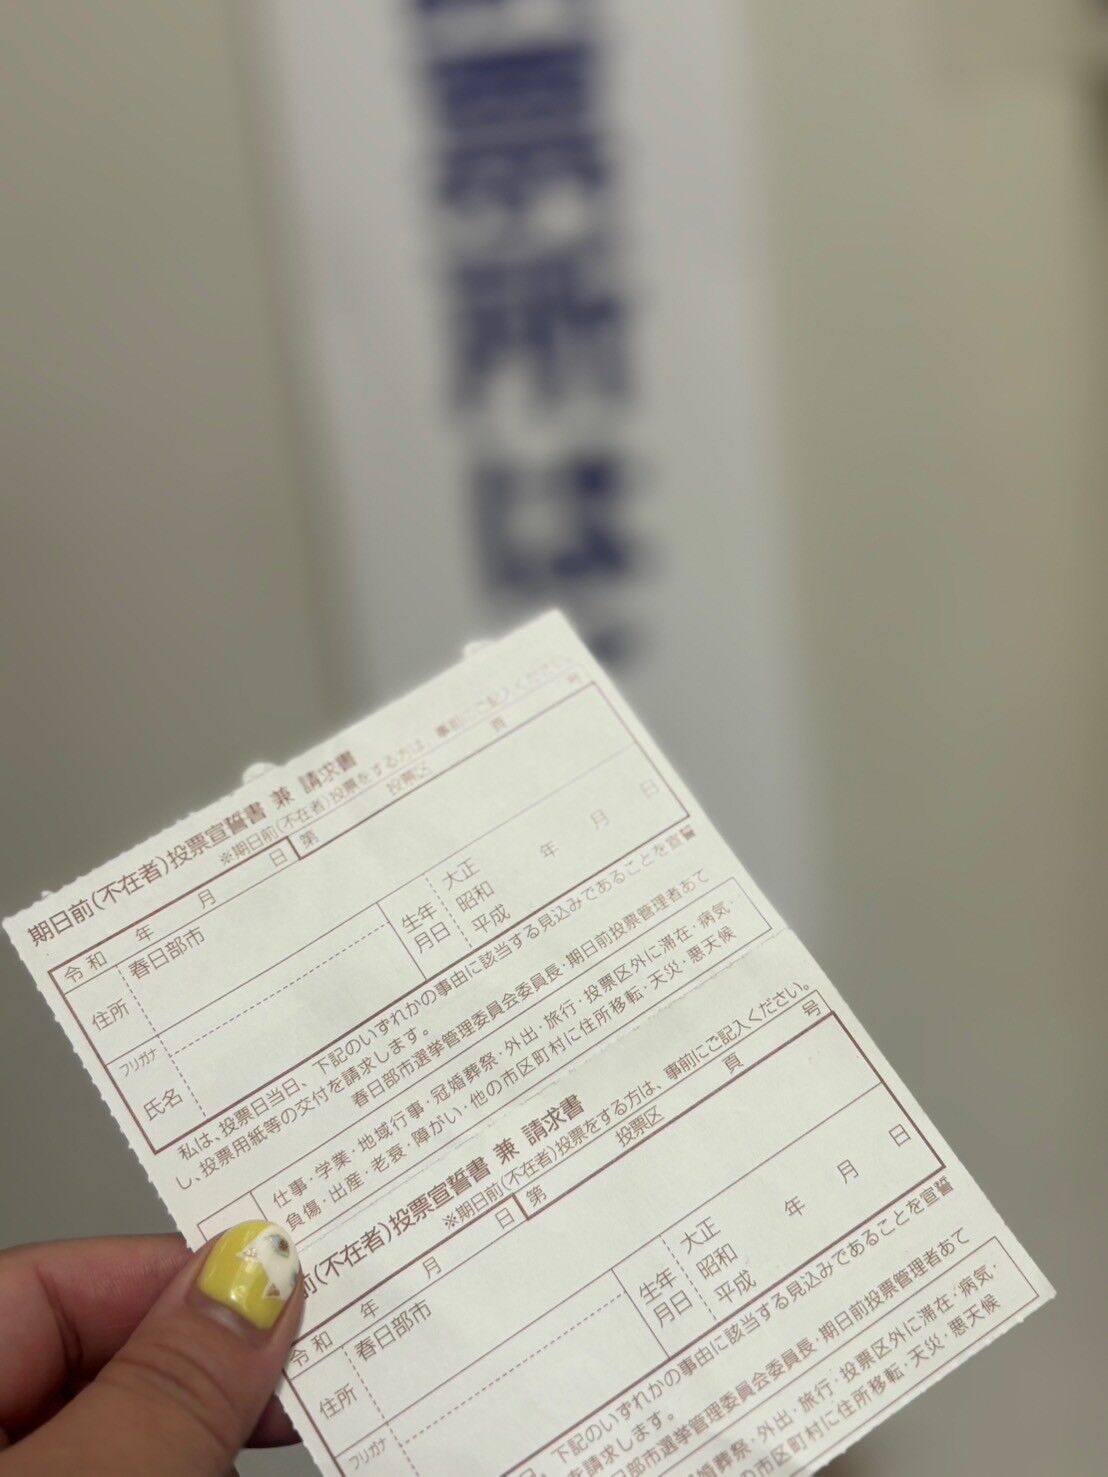 票所は
期日前(不在者)投票宣誓書 兼 請求書
※期日前(不在者)投票をする方は、事前にご記入ください。
令和 年 月 日 第 投票区 頁 号
住所 春日部市
フリガナ
氏名
生年月日 大正 昭和 平成 年 月 日
私は、投票日当日、下記のいずれかの事由に該当する見込みであることを宣誓
し、投票用紙等の交付を請求します。
春日部市選挙管理委員会委員長・期日前投票管理者あて
仕事・学業・地域行事・冠婚葬祭・外出・旅行・投票区外に滞在・病気・
負傷・出産・老衰・障がい・他の市区町村に住所移転・天災・悪天候
前(不在者)投票宣誓書 兼 請求書
※期日前(不在者)投票をする方は、事前にご記入ください。
令和 年 月 日 第 投票区 頁 号
住所 春日部市
フリガナ
生年月日 大正 昭和 平成 年 月 日
日、下記のいずれかの事由に該当する見込みであることを宣誓
の交付を請求します。
春日部市選挙管理委員会委員長・期日前投票管理者あて
冠婚葬祭・外出・旅行・投票区外に滞在・病気・
の市区町村に住所移転・天災・悪天候